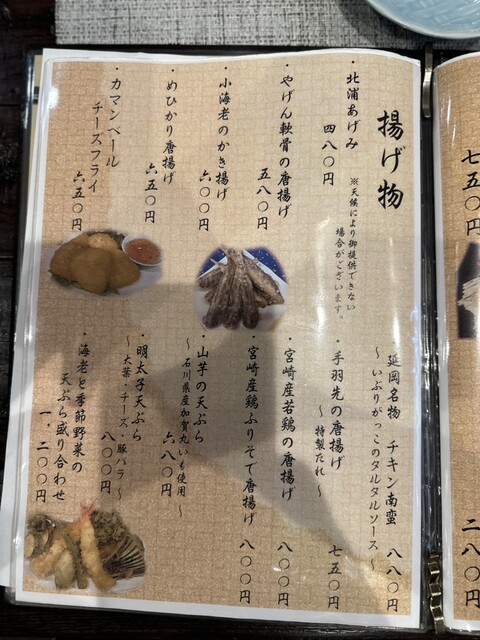 揚げ物
・北浦あげみ 四八〇円
※天候により御提供できない
場合がございます。
・やげん軟骨の唐揚げ 五八〇円
・小海老のかき揚げ 六〇〇円
・めひかり唐揚げ 六五〇円
・カマンベール
チーズフライ 六五〇円
・延岡名物 チキン南蛮 八八〇円
～いぶりがっこのタルタルソース～
・手羽先の唐揚げ 七五〇円
～特製だれ～
・宮崎産若鶏の唐揚げ 八〇〇円
・宮崎産鶏ふりそで唐揚げ 八〇〇円
・山芋の天ぷら 六八〇円
～石川県産加賀丸いも使用～
・明太子天ぷら 八〇〇円
～大葉・チーズ・豚バラ～
・海老と季節野菜の
天ぷら盛り合わせ
一、二〇〇円
七五〇円
二八〇円